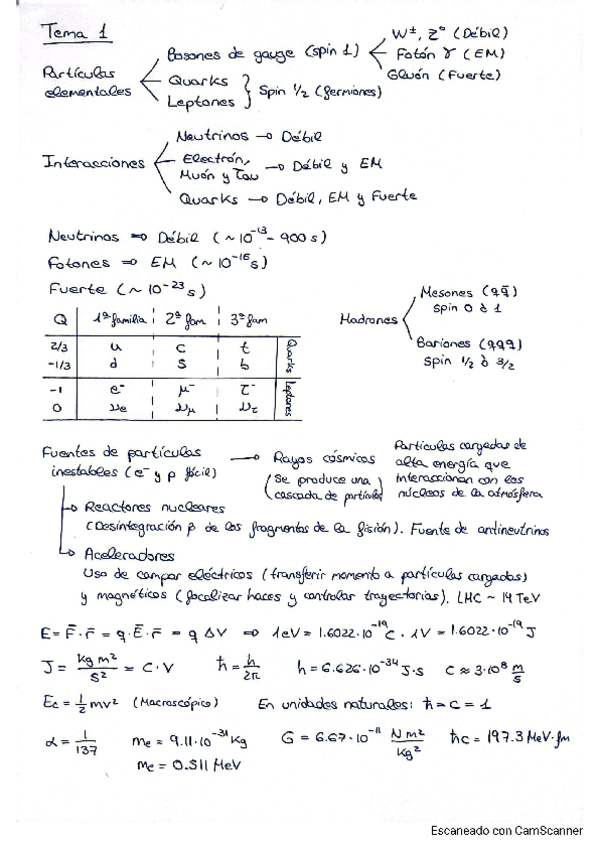 Tema 1
Partículas elementales
Bosones de gauge (spin 1)
W±, Z⁰ (Débil)
Fotón γ (EM)
Gluón (Fuerte)
Quarks
Leptones
Spin 1/2 (fermiones)
Interacciones
Neutrinos → Débil
Electrón, Muón y Tau → Débil y EM
Quarks → Débil, EM y Fuerte
Neutrinos ⇒ Débil (~10⁻¹³ - 900 s)
Fotones ⇒ EM (~10⁻¹⁶ s)
Fuerte (~10⁻²³ s)
Hadrones
Mesones (qq̄)
spin 0 ó 1
Bariones (qqq)
spin 1/2 ó 3/2
Q 1ª familia 2ª fam 3ª fam
2/3 u c t
-1/3 d s b
Quarks
-1 e⁻ μ⁻ τ⁻
0 νe νμ ντ
Leptones
Fuentes de partículas
inestables (e⁻ y p fácil)
→ Rayos cósmicos
(Se produce una
cascada de partículas)
Partículas cargadas de
alta energía que
interaccionan con los
núcleos de la atmósfera
→ Reactores nucleares
(Desintegración β de los fragmentos de la fisión). Fuente de antineutrinos
→ Aceleradores
Uso de campos eléctricos (transferir momento a partículas cargadas)
y magnéticos (focalizar haces y controlar trayectorias). LHC ~ 14 TeV
E = F̄·r̄ = q·Ē·r̄ = q ΔV ⇒ 1eV = 1.6022·10⁻¹⁹ C · 1V = 1.6022·10⁻¹⁹ J
J = kg m²/s² = C·V ħ = h/2π h = 6.626·10⁻³⁴ J·s c ≈ 3·10⁸ m/s
Ec = 1/2 mv² (Macroscópico) En unidades naturales: ħ = c = 1
α = 1/137 me = 9.11·10⁻³¹ kg G = 6.67·10⁻¹¹ N m²/kg² ħc = 197.3 MeV·fm
me = 0.511 MeV
Escaneado con CamScanner